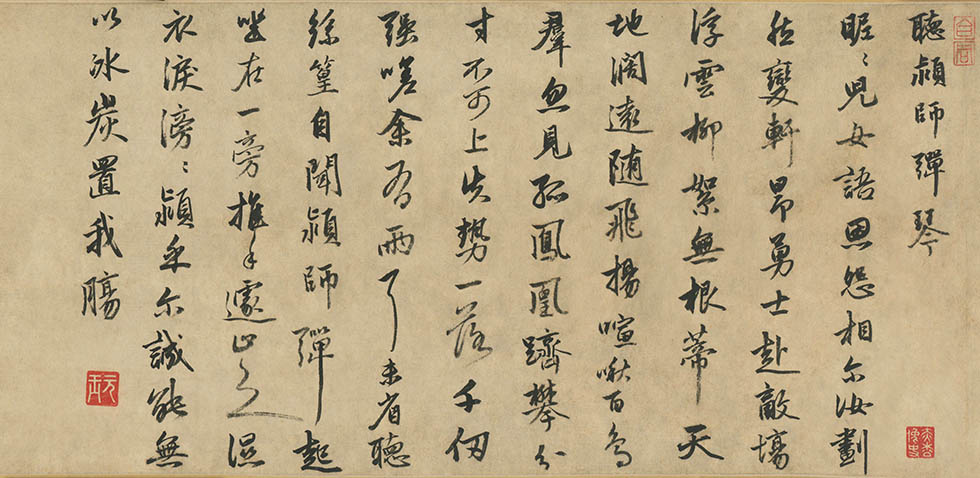 聽潁師彈琴
昵〻兒女語恩怨相尒汝劃
然變軒昂勇士赴敵場
浮雲柳絮無根蒂天
地闊遠隨飛揚喧啾百鳥
羣忽見孤鳳凰躋攀分
寸不可上失勢一落千仞
强嗟余有兩耳未省聽
絲篁自聞潁師彈起
坐在一旁推手遽止之濕
衣淚滂〻潁乎尒誠能無
以冰炭置我腸